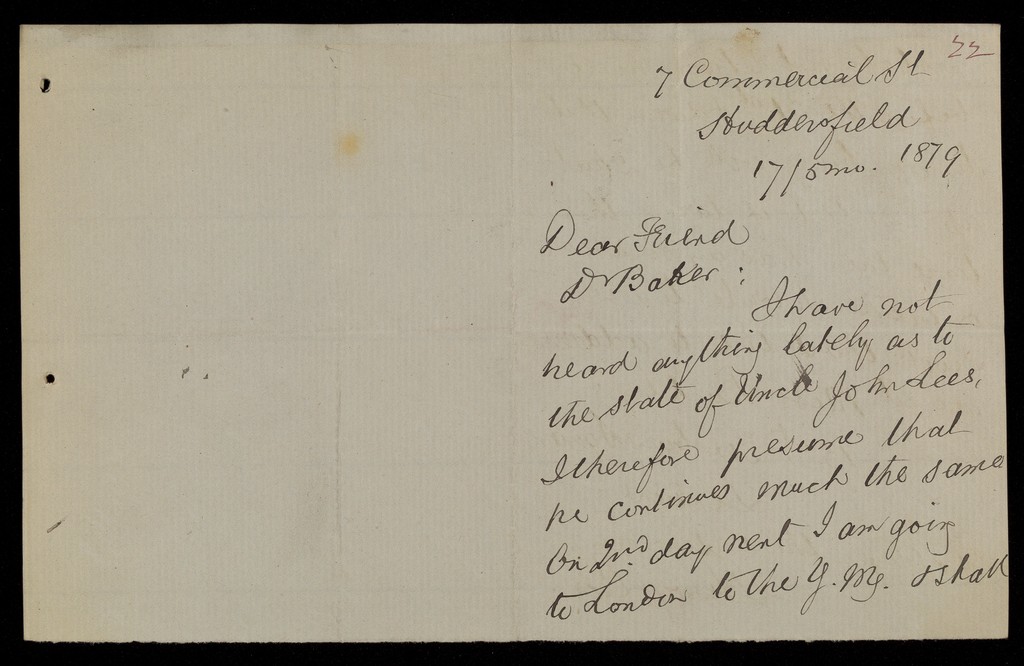 22
7 Commercial St
Huddersfield
17/5mo. 1879
Dear Friend
Dr Baker :
I have not
heard anything lately as to
the state of Uncle John Lees,
I therefore presume that
he continues much the same
On 2nd day next I am going
to London to the Y. Mg. & shall